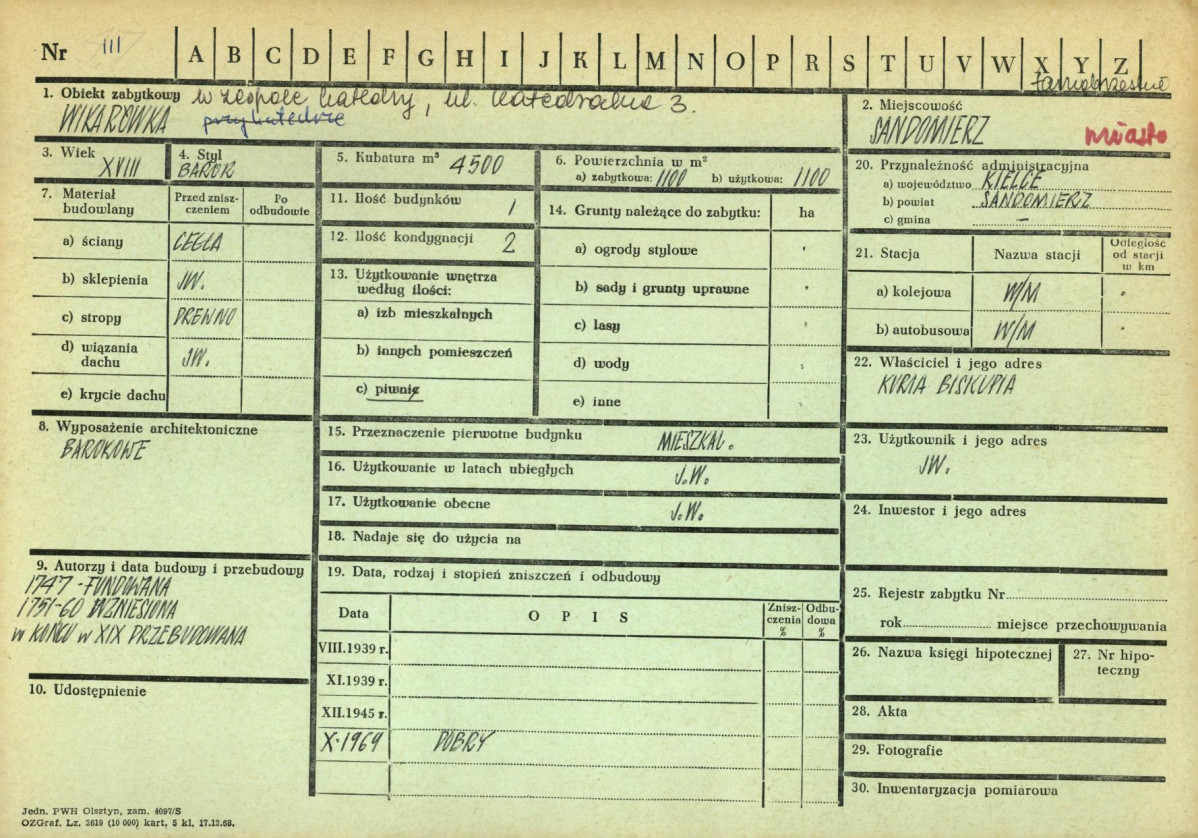 Nr III A B C D E F G H I J K L M N O P R S T U V W X Y Z
Tarnobrzeskie
1. Obiekt zabytkowy w zespole katedry, ul. Katedralna 3.
WIKARÓWKA przy katedrze
2. Miejscowość
SANDOMIERZ miasto
3. Wiek
XVIII
4. Styl
BAROK
5. Kubatura m³ 4500
6. Powierzchnia w m²
a) zabytkowa: 1100 b) użytkowa: 1100
20. Przynależność administracyjna
a) województwo KIELCE
b) powiat SANDOMIERZ
c) gmina —
7. Materiał budowlany
Przed zniszczeniem
Po odbudowie
a) ściany CEGŁA
b) sklepienia JW.
c) stropy DREWNO
d) wiązania dachu JW.
e) krycie dachu
11. Ilość budynków 1
12. Ilość kondygnacji 2
13. Użytkowanie wnętrza
według ilości:
a) izb mieszkalnych
b) innych pomieszczeń
c) piwnic
14. Grunty należące do zabytku: ha
a) ogrody stylowe
b) sady i grunty uprawne
c) lasy
d) wody
e) inne
21. Stacja Nazwa stacji Odległość od stacji w km
a) kolejowa W/M
b) autobusowa W/M
22. Właściciel i jego adres
KURIA BISKUPIA
8. Wyposażenie architektoniczne
BAROKOWE
15. Przeznaczenie pierwotne budynku MIESZKAL.
16. Użytkowanie w latach ubiegłych J.W.
17. Użytkowanie obecne J.W.
18. Nadaje się do użycia na
23. Użytkownik i jego adres
JW.
24. Inwestor i jego adres
9. Autorzy i data budowy i przebudowy
1747 - FUNDOWANA
1751-60 WZNIESIONA
w KOŃCU w XIX PRZEBUDOWANA
10. Udostępnienie
19. Data, rodzaj i stopień zniszczeń i odbudowy
Data OPIS Zniszczenia % Odbudowa %
VIII.1939 r.
XI.1939 r.
XII.1945 r.
X-1969 DOBRY
25. Rejestr zabytku Nr
rok miejsce przechowywania
26. Nazwa księgi hipotecznej
27. Nr hipoteczny
28. Akta
29. Fotografie
30. Inwentaryzacja pomiarowa
Jedn. PWH Olsztyn, zam. 4097/S
OZGraf. Lz. 2619 (10 000) kart. 5 kl. 17.12.68.